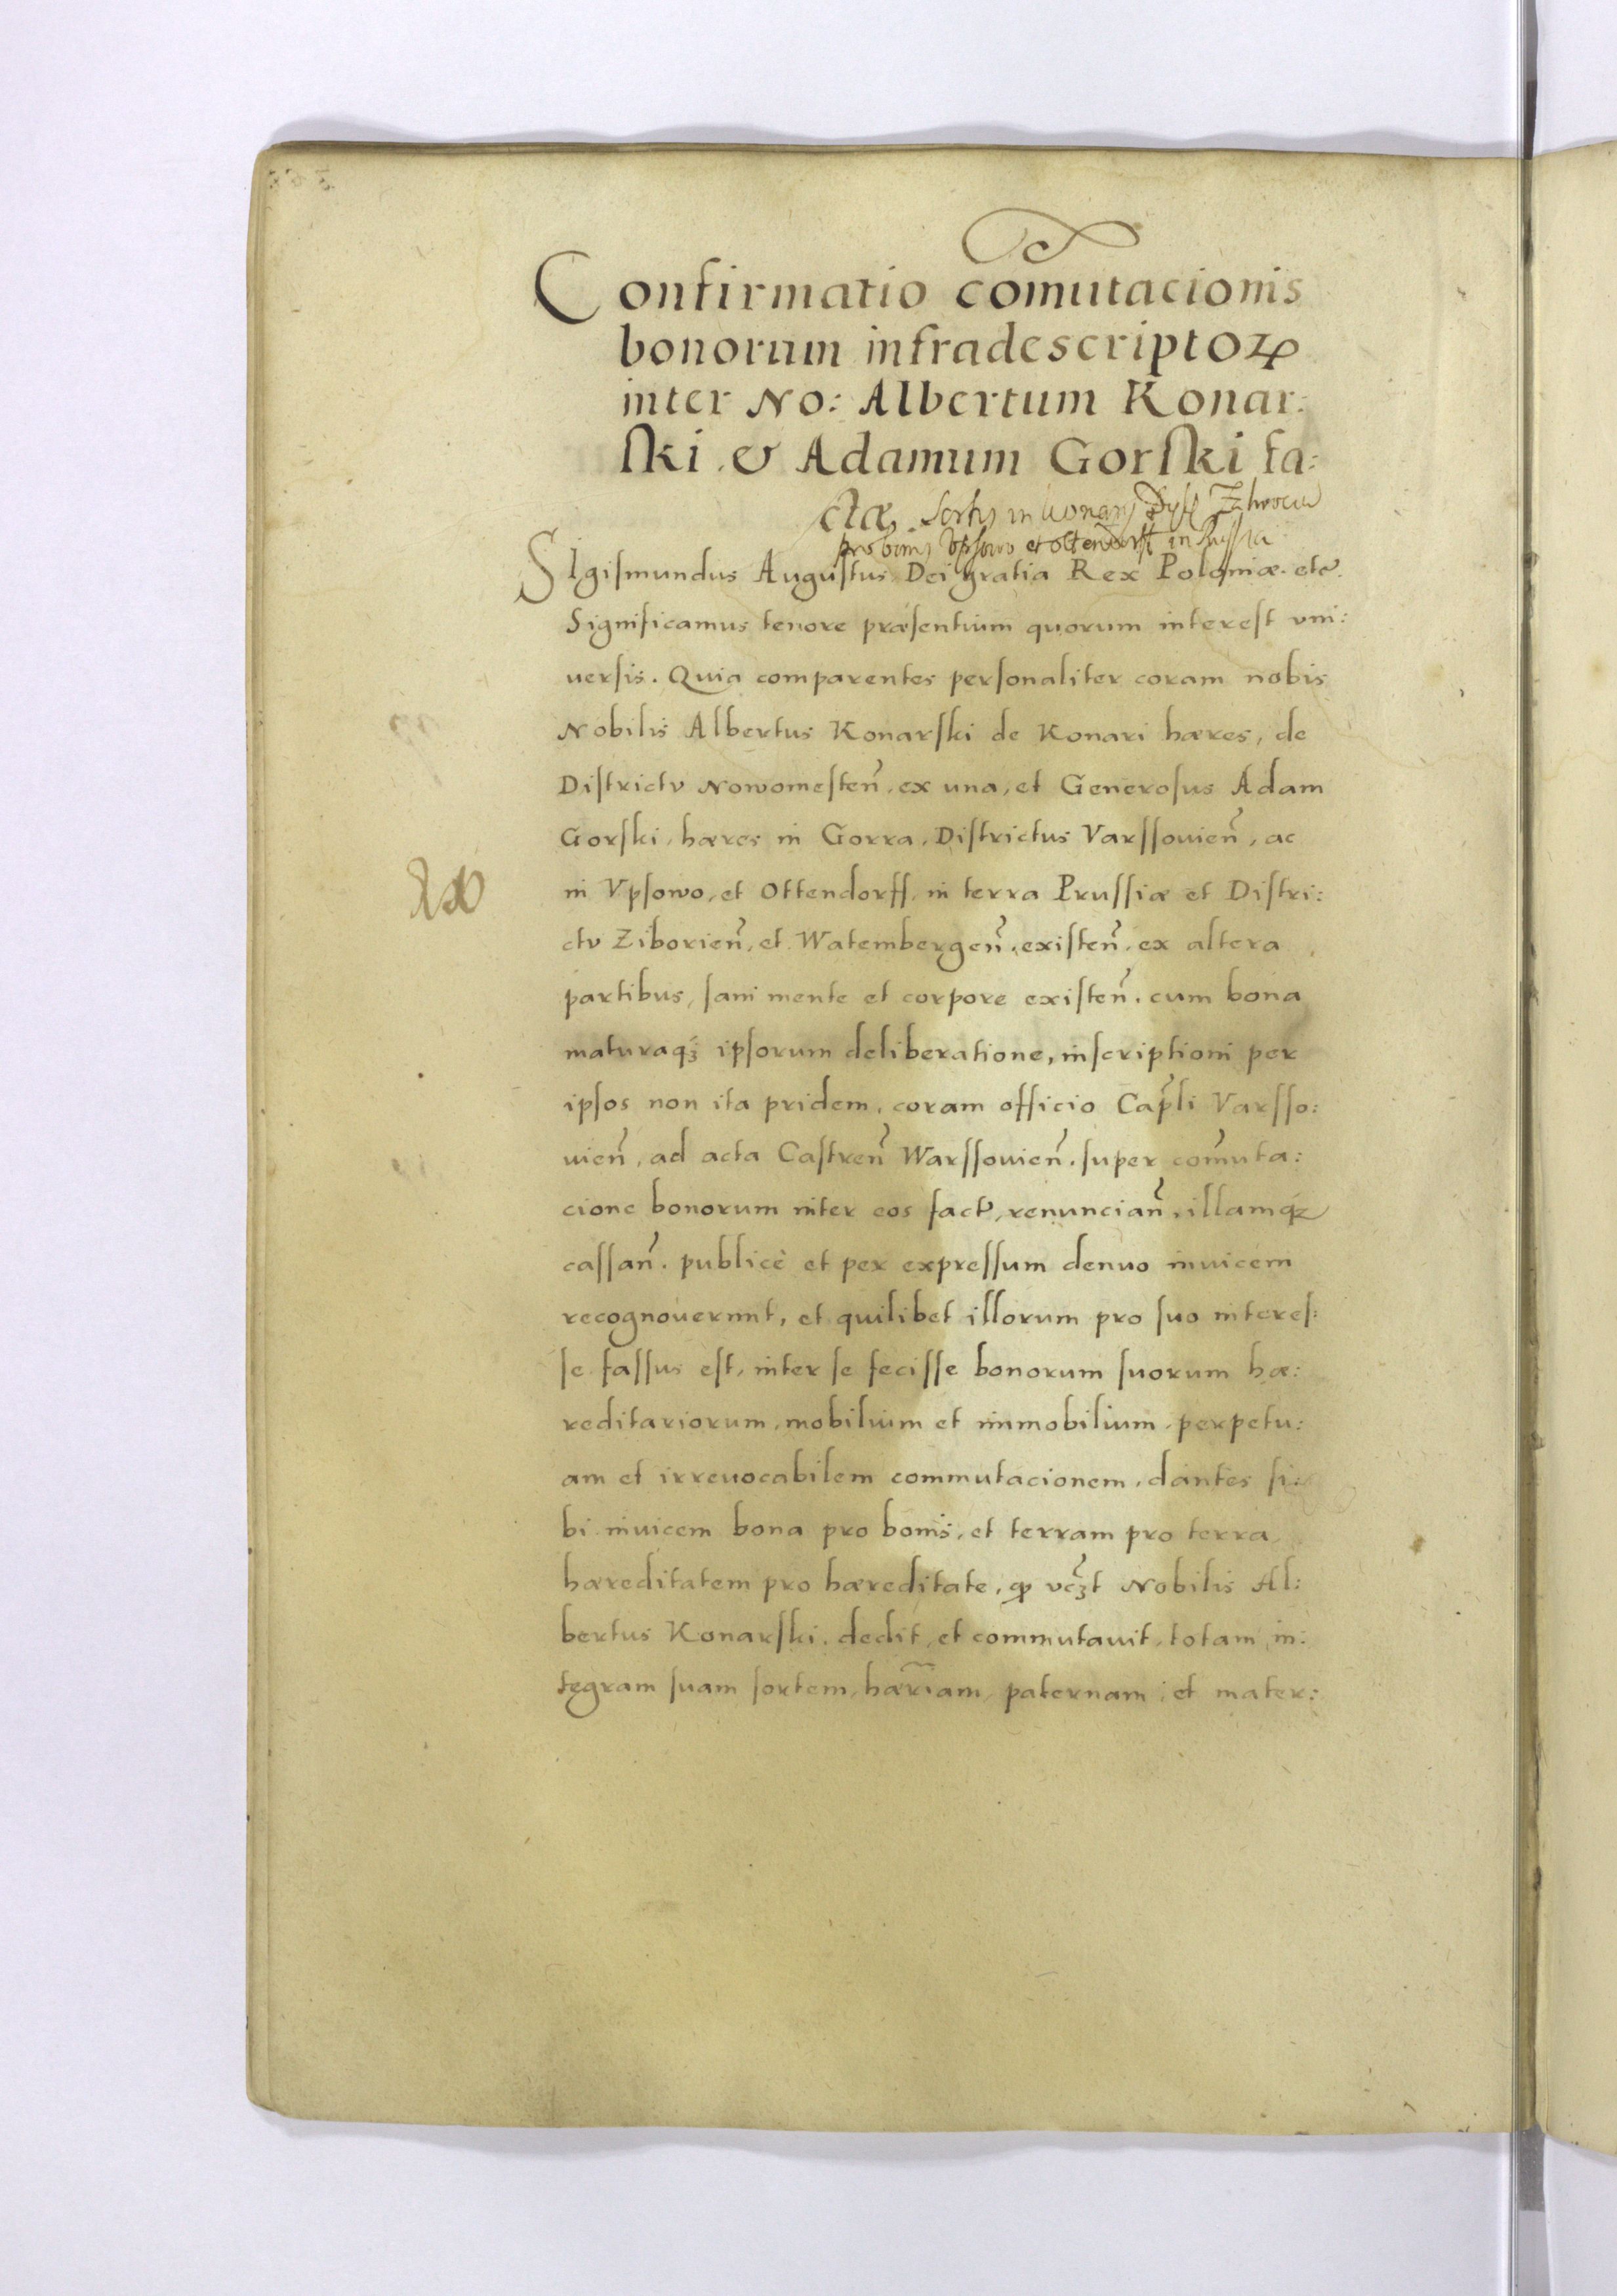 Confirmatio com̄utacionis
bonorum infradescriptoꝝ
inter No: Albertum Konar:
ſki & Adamum Gorſki fa:
ctæ. Sortis in Konary
pro bonis Vpsowo et Ottendorff in Prussia
SIgiſmundus Auguſtus Dei gratia Rex Poloniæ etc.
Significamus tenore præſentium quorum intereſt vni:
uerſis. Quia comparentes perſonaliter coram nobis
Nobilis Albertus Konarſki de Konari hæres, de
Diſtrictv Nowomeſten̄, ex una, et Generoſus Adam
Gorſki, hæres in Gorra, Diſtrictus Varſſouien̄, ac
in Vpſowo, et Ottendorff, in terra Pruſſiæ et Diſtri:
ctv Ziborien̄, et Watembergen̄, exiſten̄, ex altera
partibus, ſani mente et corpore exiſten̄. cum bona
maturaqꝫ ipſorum deliberatione, inſcriptioni per
ipſos non ita pridem, coram officio Cap̄li Varſſo:
uien̄, ad acta Caſtren̄ Warſſouien̄. ſuper com̄uta:
cione bonorum inter eos fact̄, renuncian̄, illamqꝫ
caſſan̄. publicè et per expreſſum denuo inuicem
recognouerunt, et quilibet illorum pro ſuo intereſ:
ſe faſſus eſt, inter ſe feciſſe bonorum ſuorum hæ:
reditariorum, mobilium et immobilium, perpetu:
am et irreuocabilem commutacionem, dantes ſi:
bi inuicem bona pro bonis, et terram pro terra,
hæreditatem pro hæreditate, ꝙ vcꝫt Nobilis Al:
bertus Konarſki, dedit, et commutauit, totam in:
tegram ſuam ſortem, hær̄iam, paternam, et mater: